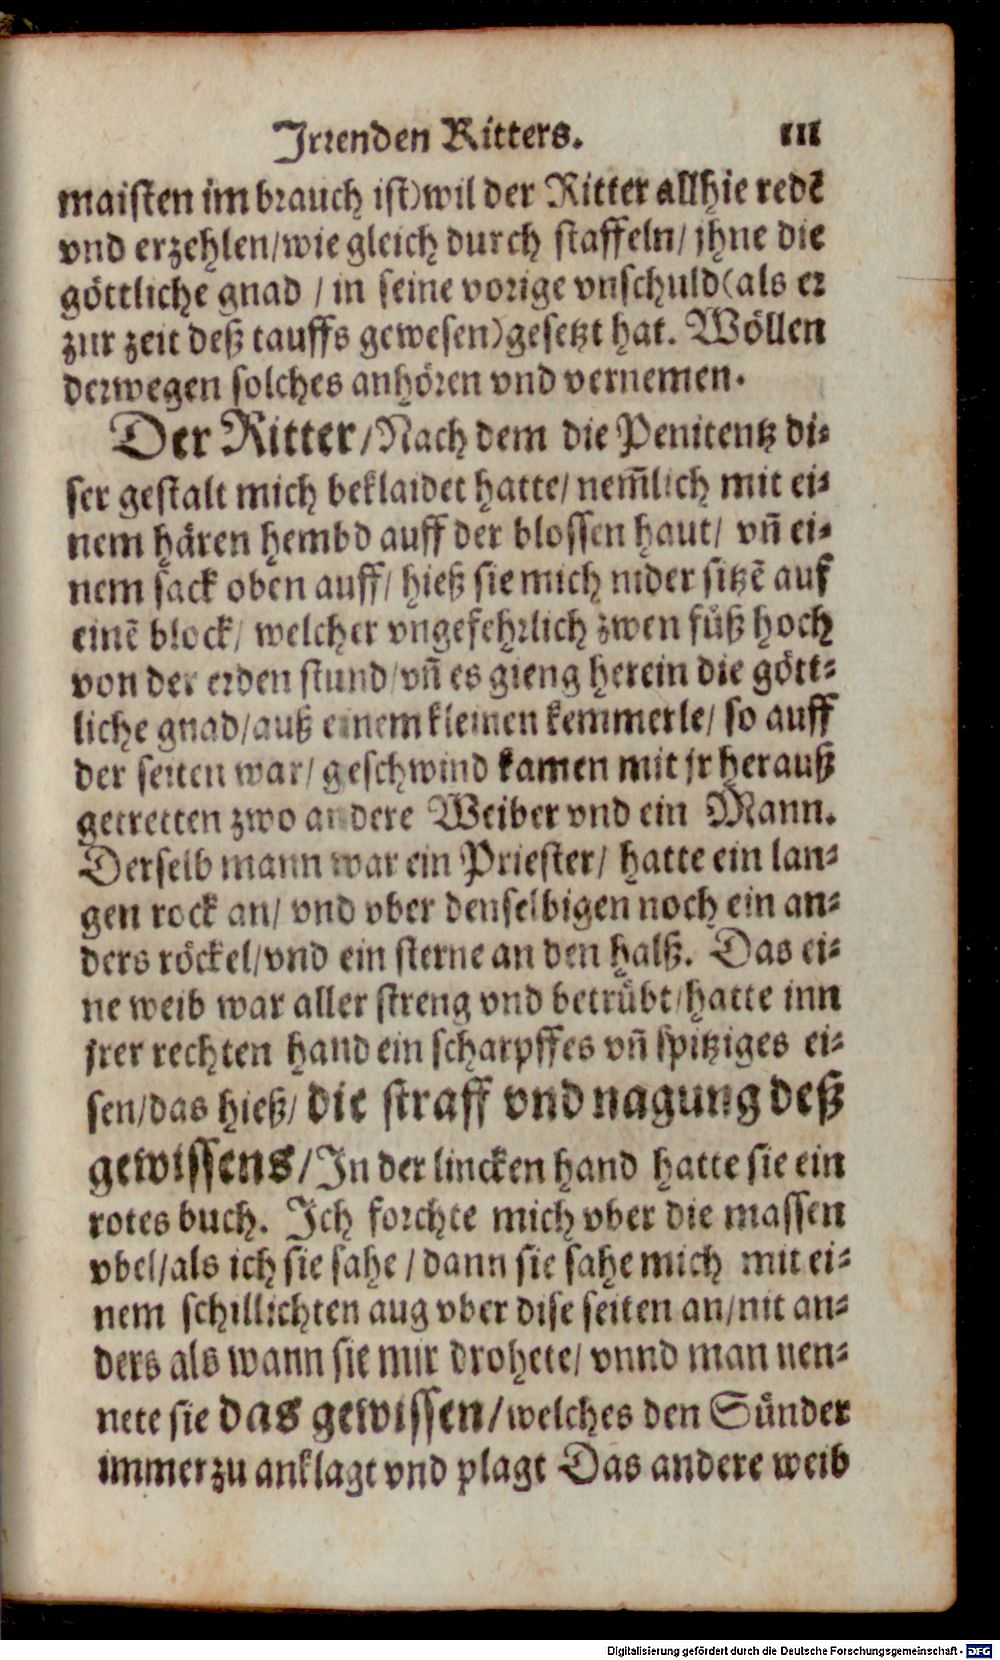 Irrenden Ritters. 111
maisten im brauch ist) wil der Ritter allhie redẽ
vnd erzehlen/wie gleich durch staffeln/ jhne die
göttliche gnad / in seine vorige vnschuld(als er
zur zeit deß tauffs gewesen)gesetzt hat. Wöllen
derwegen solches anhören vnd vernemen.
Der Ritter/Nach dem die Penitentz di-
ser gestalt mich beklaidet hatte/ nem̃lich mit ei-
nem hären hembd auff der blossen haut/ vñ ei-
nem sack oben auff/ hieß sie mich nider sitzẽ auf
einẽ block/ welcher vngefehrlich zwen füß hoch
von der erden stund/vñ es gieng herein die gött-
liche gnad/auß einem kleinen kemmerle/ so auff
der seiten war/ geschwind kamen mit jr herauß
getretten zwo andere Weiber vnd ein Mann.
Derselb mann war ein Priester/ hatte ein lan-
gen rock an/ vnd vber denselbigen noch ein an-
ders röckel/vnd ein sterne an den halß. Das ei-
ne weib war aller streng vnd betrübt/hatte inn
jrer rechten hand ein scharpffes vñ spitziges ei-
sen/das hieß/ die straff vnd nagung deß
gewissens/In der lincken hand hatte sie ein
rotes buch. Ich forchte mich vber die massen
vbel/als ich sie sahe / dann sie sahe mich mit ei-
nem schillichten aug vber dise seiten an/nit an-
ders als wann sie mir drohete/ vnnd man nen-
nete sie das gewissen/welches den Sünder
immerzu anklagt vnd plagt Das andere weib
Digitalisierung gefördert durch die Deutsche Forschungsgemeinschaft - DFG